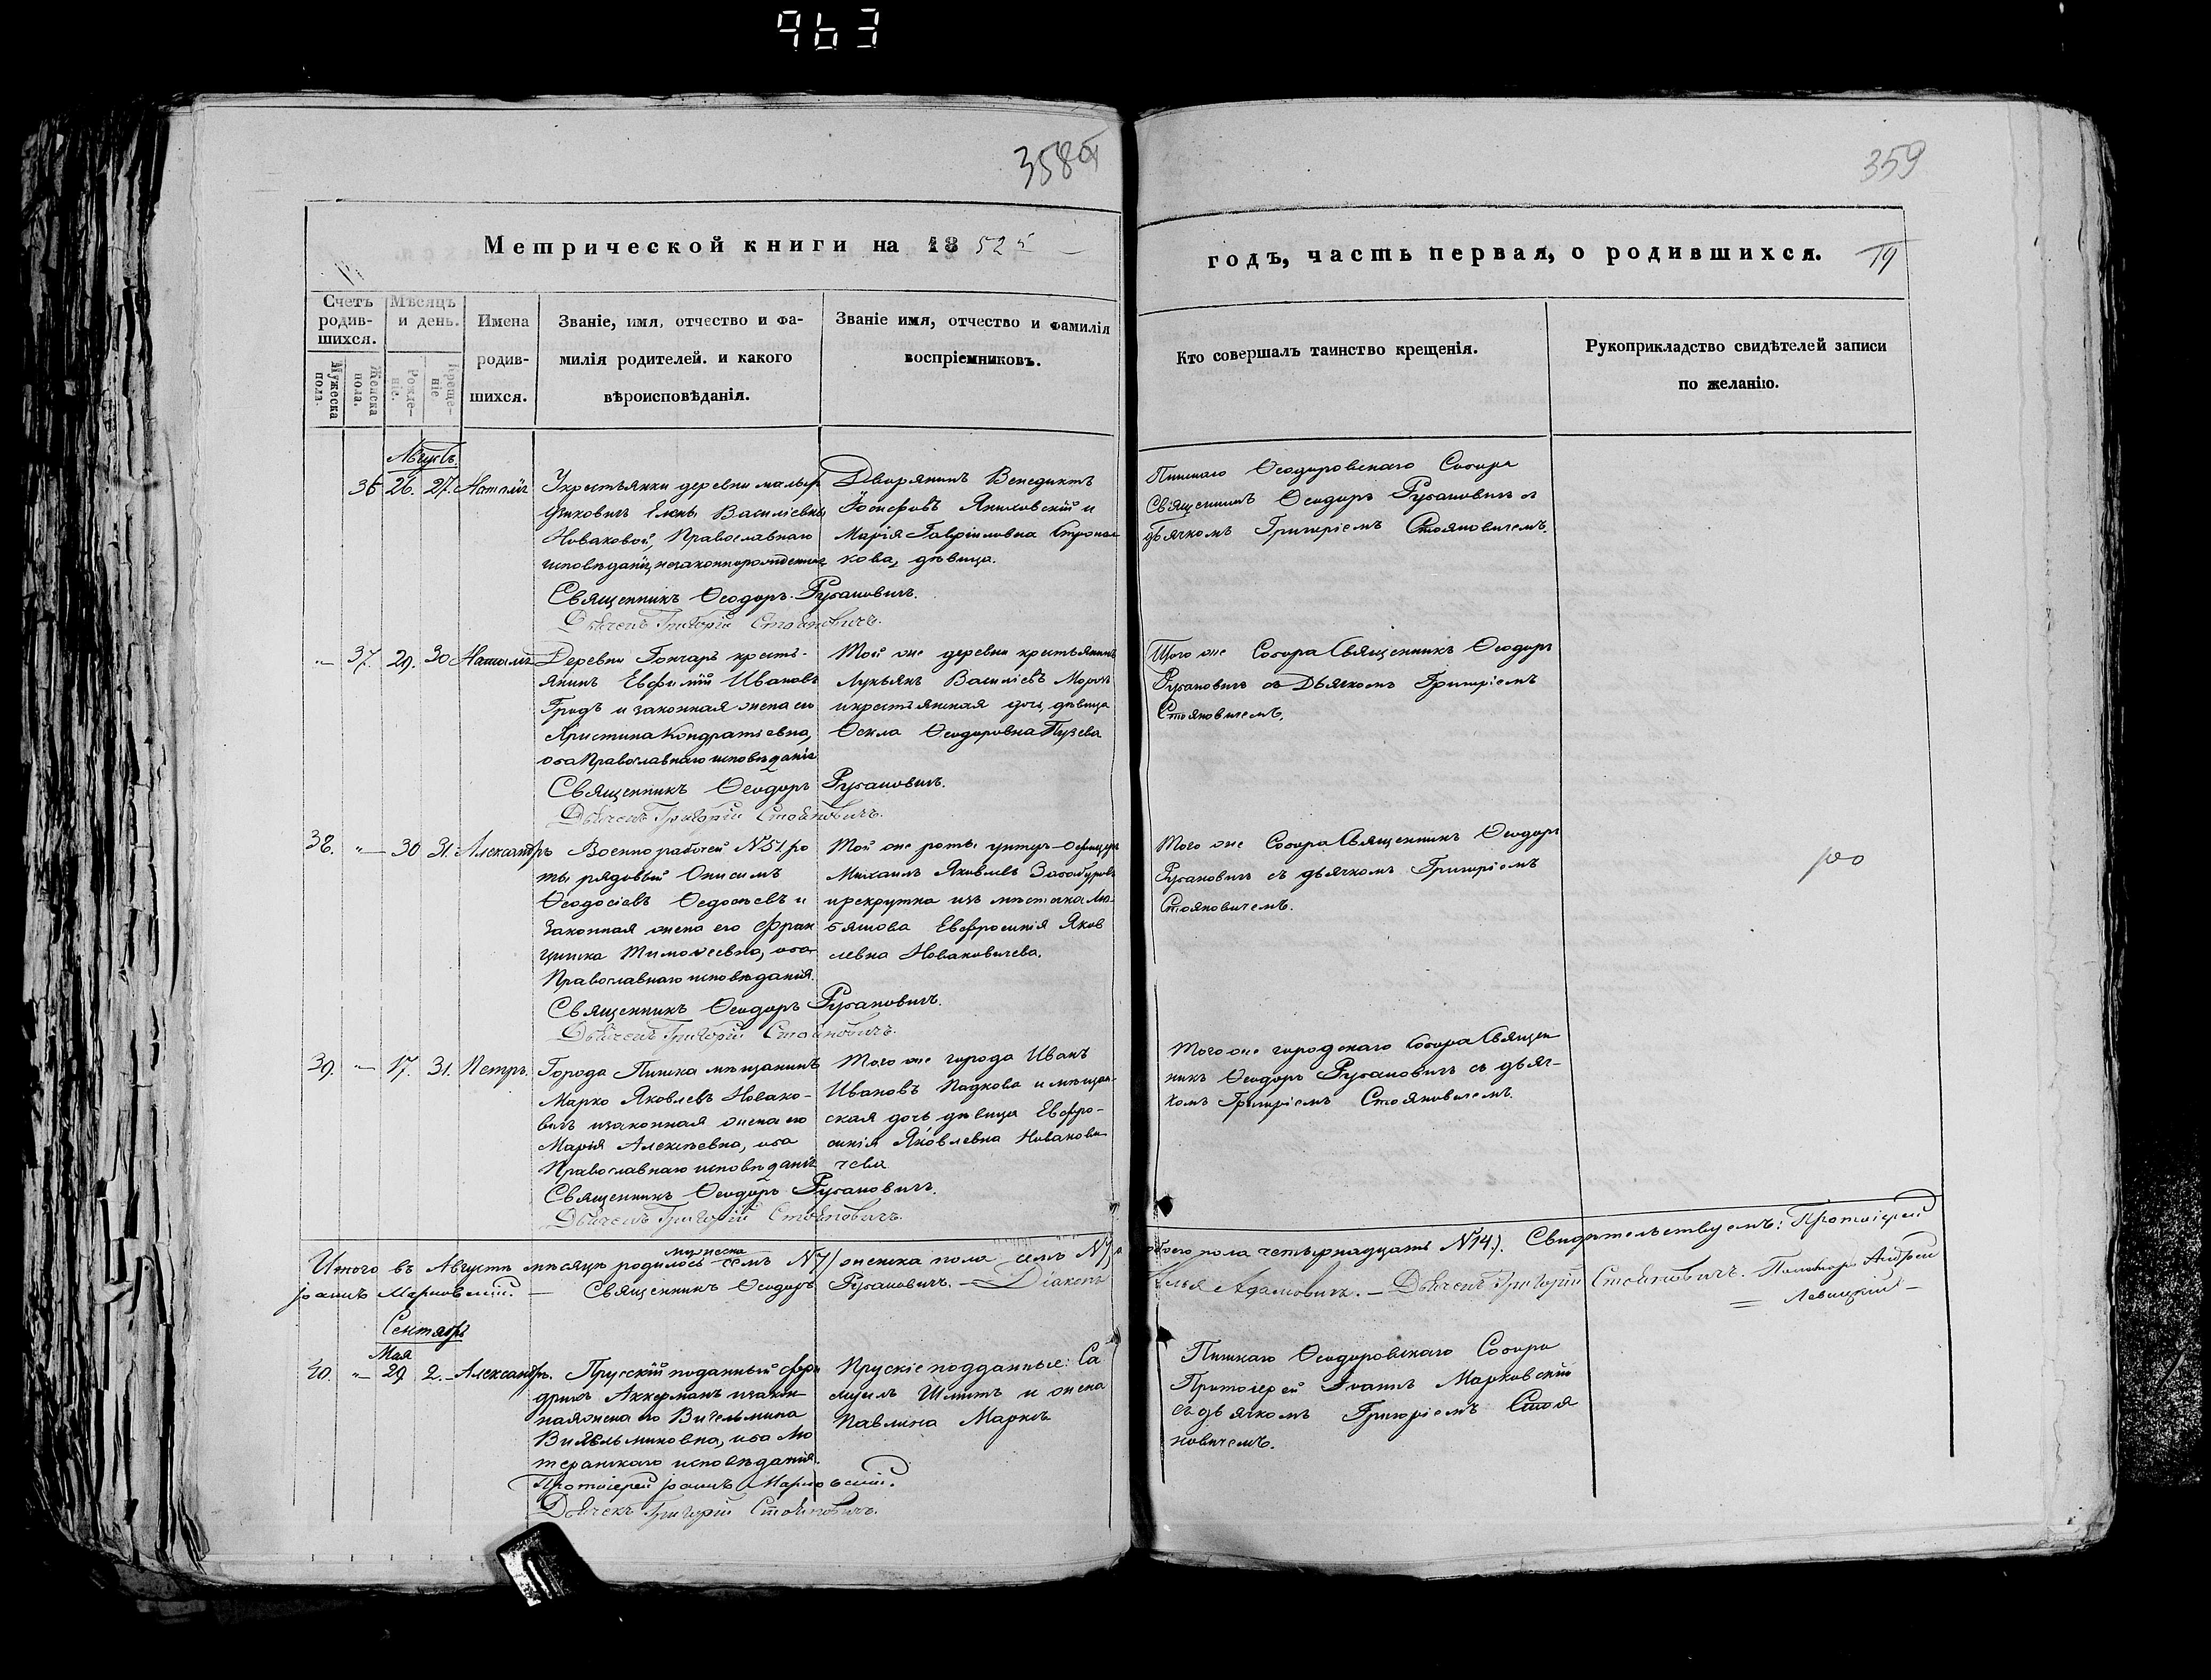 963
358 об
359
Метрической книги на 1852 й
годъ, часть первая, о родившихся.
19
Счетъ родив-шихся.
Мужеска пола.
Женска пола.
Мѣсяцъ и день.
Рожде-ніе.
Креще-ніе
Имена
родив-
шихся.
Званіе, имя, отчество и фа-
милія родителей. и какого
вѣроисповѣданія.
Званіе имя, отчество и фамилія
воспріемниковъ.
Кто совершалъ таинство крещенія.
Рукоприкладство свидѣтелей записи
по желанію.
Августъ.
36 26. 27. Наталія
Крестьянки деревни
Елены Василіевны
Новаковой, Православнаго
исповѣданія, незаконнорожденная
Священникъ Ѳеодоръ Рубановичъ.
Дьячекъ Григорій Стояновичъ.
Дворянинъ Венедиктъ
Іосифовъ Яниховскій и
Марія Гавріиловна
кова, дѣвица.
Пинскаго Ѳеодоровскаго Собора
Священникъ Ѳеодоръ Рубановичъ съ
дьячкомъ Григоріемъ Стояновичемъ.
" 37. 29. 30 Наталія
Деревни Гончаръ кресть-
янинъ Евфимій Ивановъ
Гридъ и законная жена его
Христина Кондратьевна,
оба Православнаго исповѣданія
Священникъ Ѳеодоръ Рубановичъ.
Дьячекъ Григорій Стояновичъ.
Той же деревни крестьянинъ
Лукьянъ Василіевъ Морозъ
и крестьянская дочь, дѣвица
Ѳекла Ѳеодоровна
Того же Собора Священникъ Ѳеодоръ
Рубановичъ съ Дьячкомъ Григоріемъ
Стояновичемъ.
38. " 30 31. Александръ
Военно рабочей N 51. ро
ты рядовый Онисимъ
Ѳеодосіевъ Ѳедосѣевъ и
законная жена его Фран
циска Тимоѳеевна, оба
Православнаго исповѣданія.
Священникъ Ѳеодоръ Рубановичъ.
Дьячекъ Григорій Стояновичъ.
Той же роты унтеръ-офицеръ
Михаилъ Яковлевъ
и рекрутка изъ мѣстечка Лю-
бяшова Евфросинія Яков
левна Новаковичева.
Того же Собора Священникъ Ѳеодоръ
Рубановичъ съ дьячкомъ Григоріемъ
Стояновичемъ.
39. " 17. 31. Петръ.
Города Пинска мѣщанинъ
Марко Яковлевъ Новако-
вичъ и законная жена его
Марія Алексѣевна, оба
Православнаго исповѣданія
Священникъ Ѳеодоръ Рубановичъ.
Дьячекъ Григорій Стояновичъ.
Того же города Иванъ
Ивановъ Падкова и мѣщан-
ская дочь дѣвица Евфро-
синія Яковлевна Новакови
чева
Того же городскаго Собора Священ
никъ Ѳеодоръ Рубановичъ съ дьяч-
комъ Григоріемъ Стояновичемъ.
Итого въ Августѣ мѣсяцѣ родилось мужеска семь N 7/ женска пола семь N 7, а обоего пола четырнадцать N 14). Свидѣтельствуемъ: Протоіерей
Іоаннъ Марковскій. — Священникъ Ѳеодоръ Рубановичъ. — Діаконъ Илья Адамовичъ. — Дьячекъ Григорій Стояновичъ. Пономарь Андрей
Левицкій —
Сентябрь
Мая
40. " 29 2. Александръ.
Прусскій подданный Фри
дрихъ Аккерманъ и закон
ная жена его Вигельмина
Вигельминовна, оба Лю
теранскаго исповѣданія.
Протоіерей Іоаннъ Марковскій.
Дьячекъ Григорій Стояновичъ.
Прускіе подданные: Са
муилъ Шмитъ и жена
Павлина Марксъ
Пинскаго Ѳеодоровскаго Собора
Протоіерей Іоаннъ Марковскій
съ дьячкомъ Григоріемъ Стоя
новичемъ.